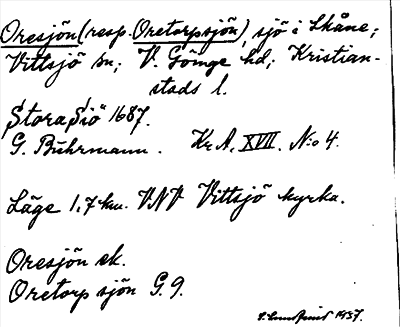 Oresjön (resp. Oretorpsjön), sjö i Skåne;
Vittsjö sn; V. Göinge hd; Kristian-
stads l.
"Stora Siö" 1687.
G. Buhrmann. Kr.A. XVII. N:o 4.
Läge 1,7 km. VNV Vittsjö kyrka.
Oresjön ek.
Oretorp sjön G. 9.
1937.